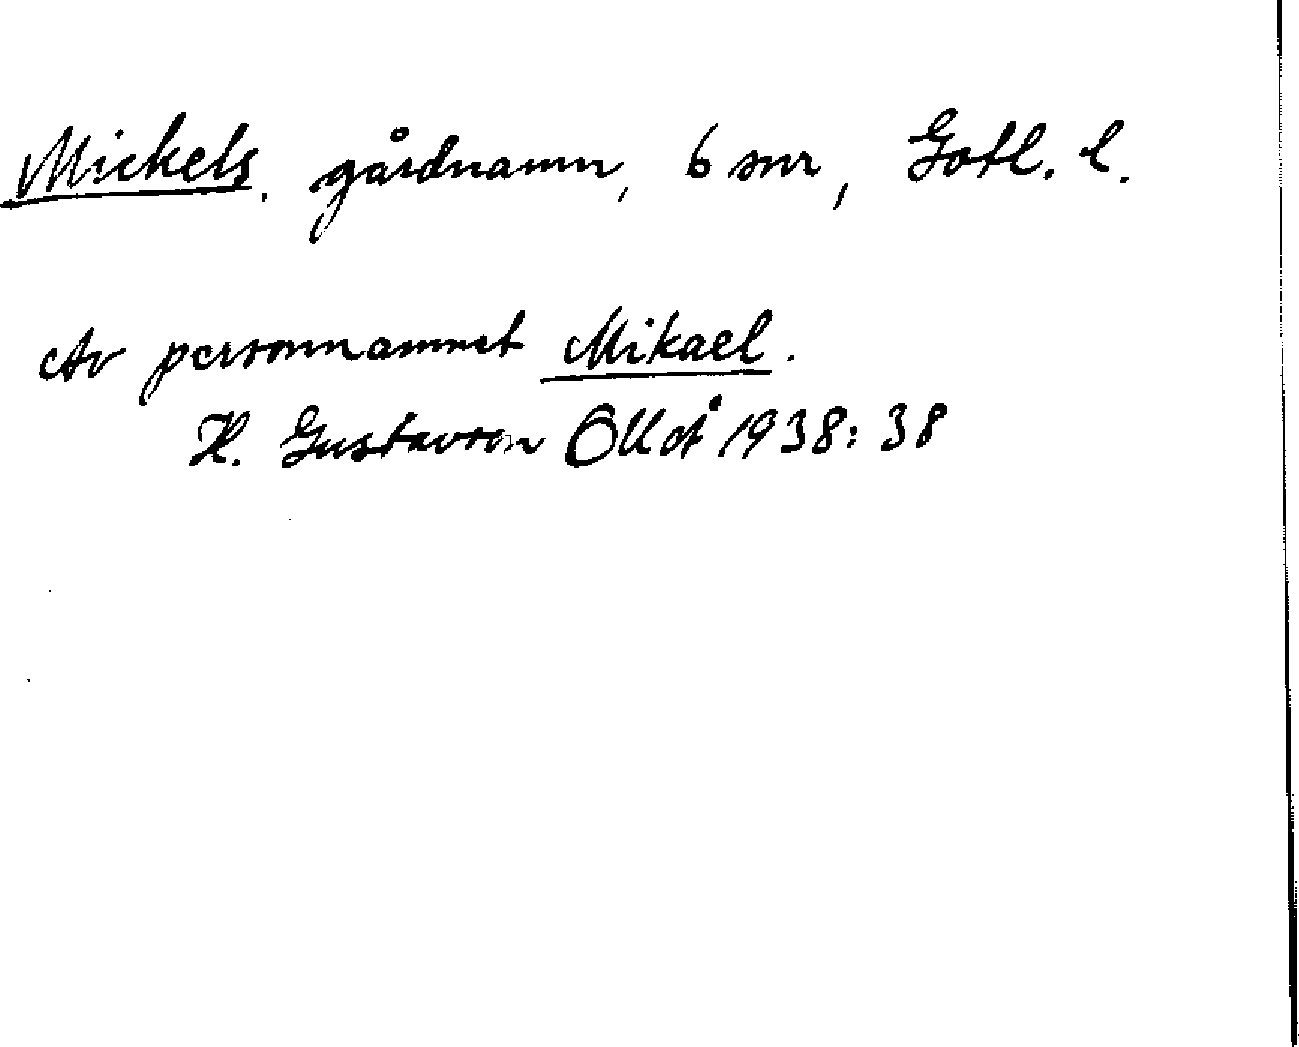 Mickels, gårdnamn, 6 snr, Gotl. l.
Av personnamnet Mikael.
H. Gustavson OUÅ 1938: 38